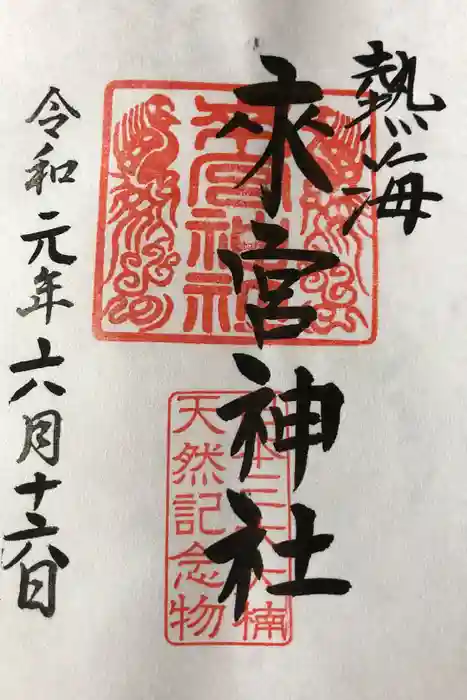 熱海
來宮神社
令和元年六月十六日
來宮神社
日本三大大楠
天然記念物